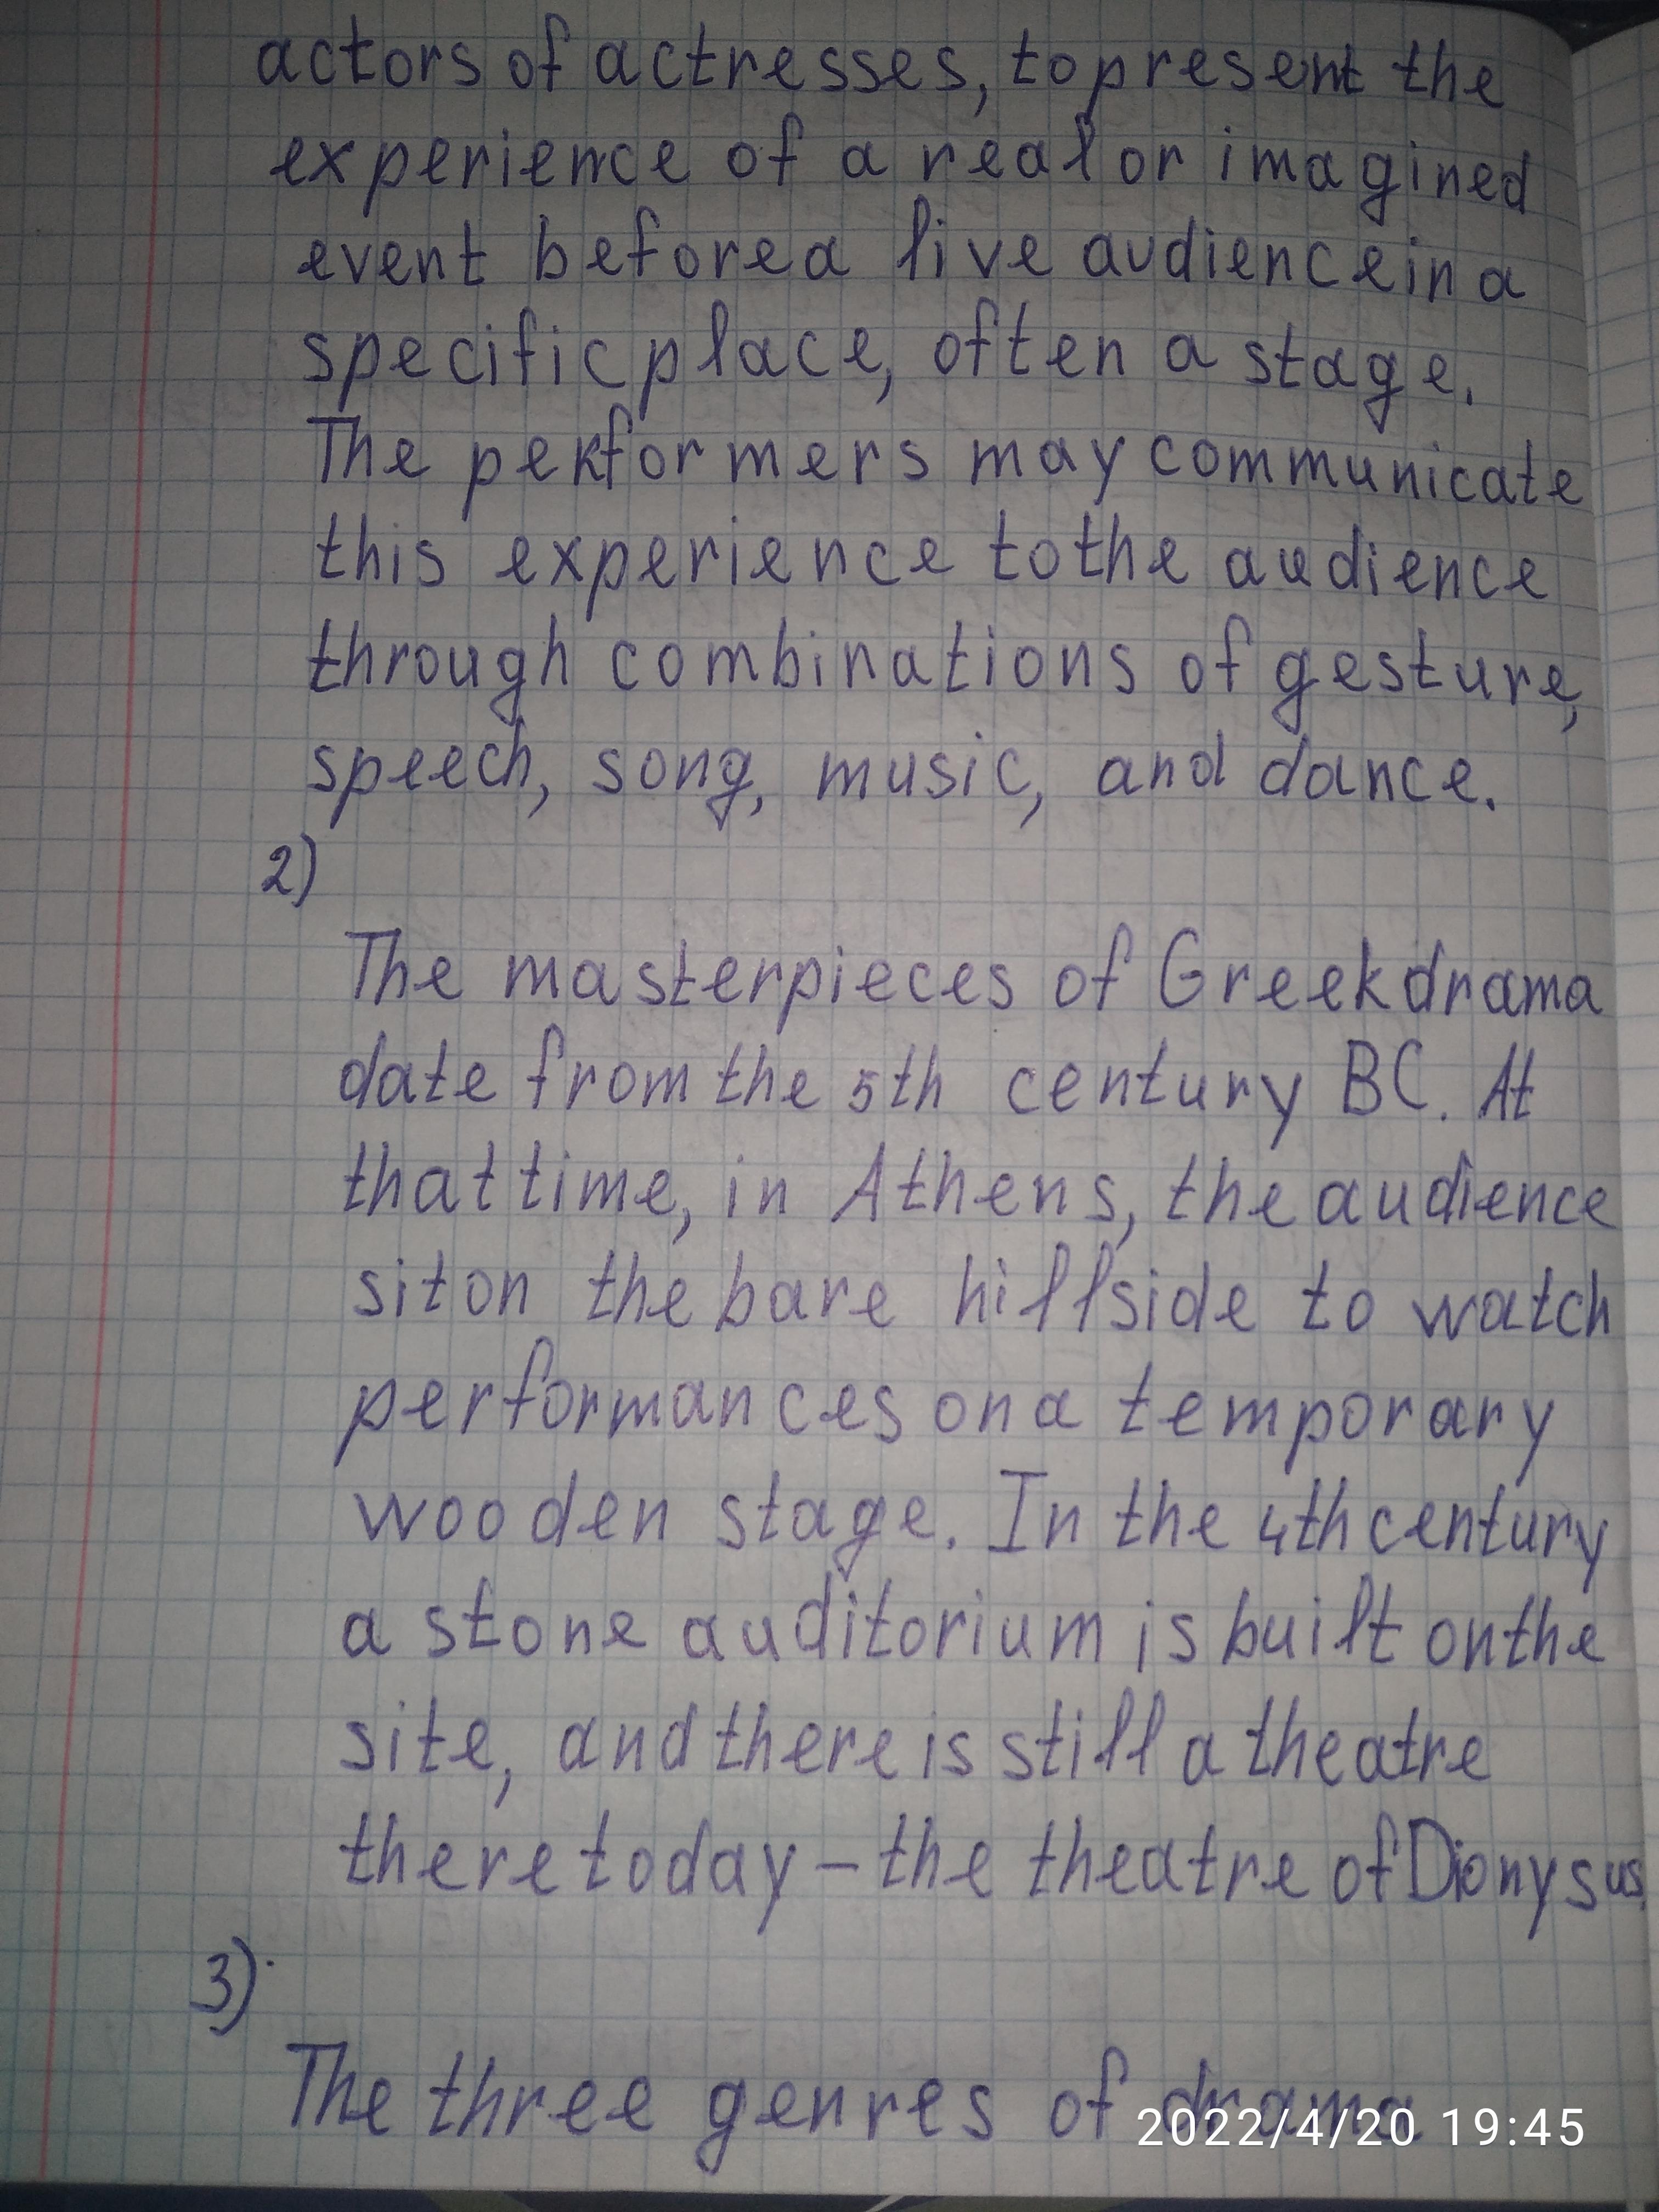 actors of actresses, to present the
experience of a real or imagined
event before a live audience in a
specific place, often a stage.
The performers may communicate
this experience to the audience
through combinations of gesture,
speech, song, music, and dance.
2)
The masterpieces of Greek drama
date from the 5th century BC. At
that time, in Athens, the audience
sit on the bare hillside to watch
performances on a temporary
wooden stage. In the 4th century
a stone auditorium is built on the
site, and there is still a theatre
there today – the theatre of Dionysus.
3)
The three genres of drama
2022/4/20 19:45